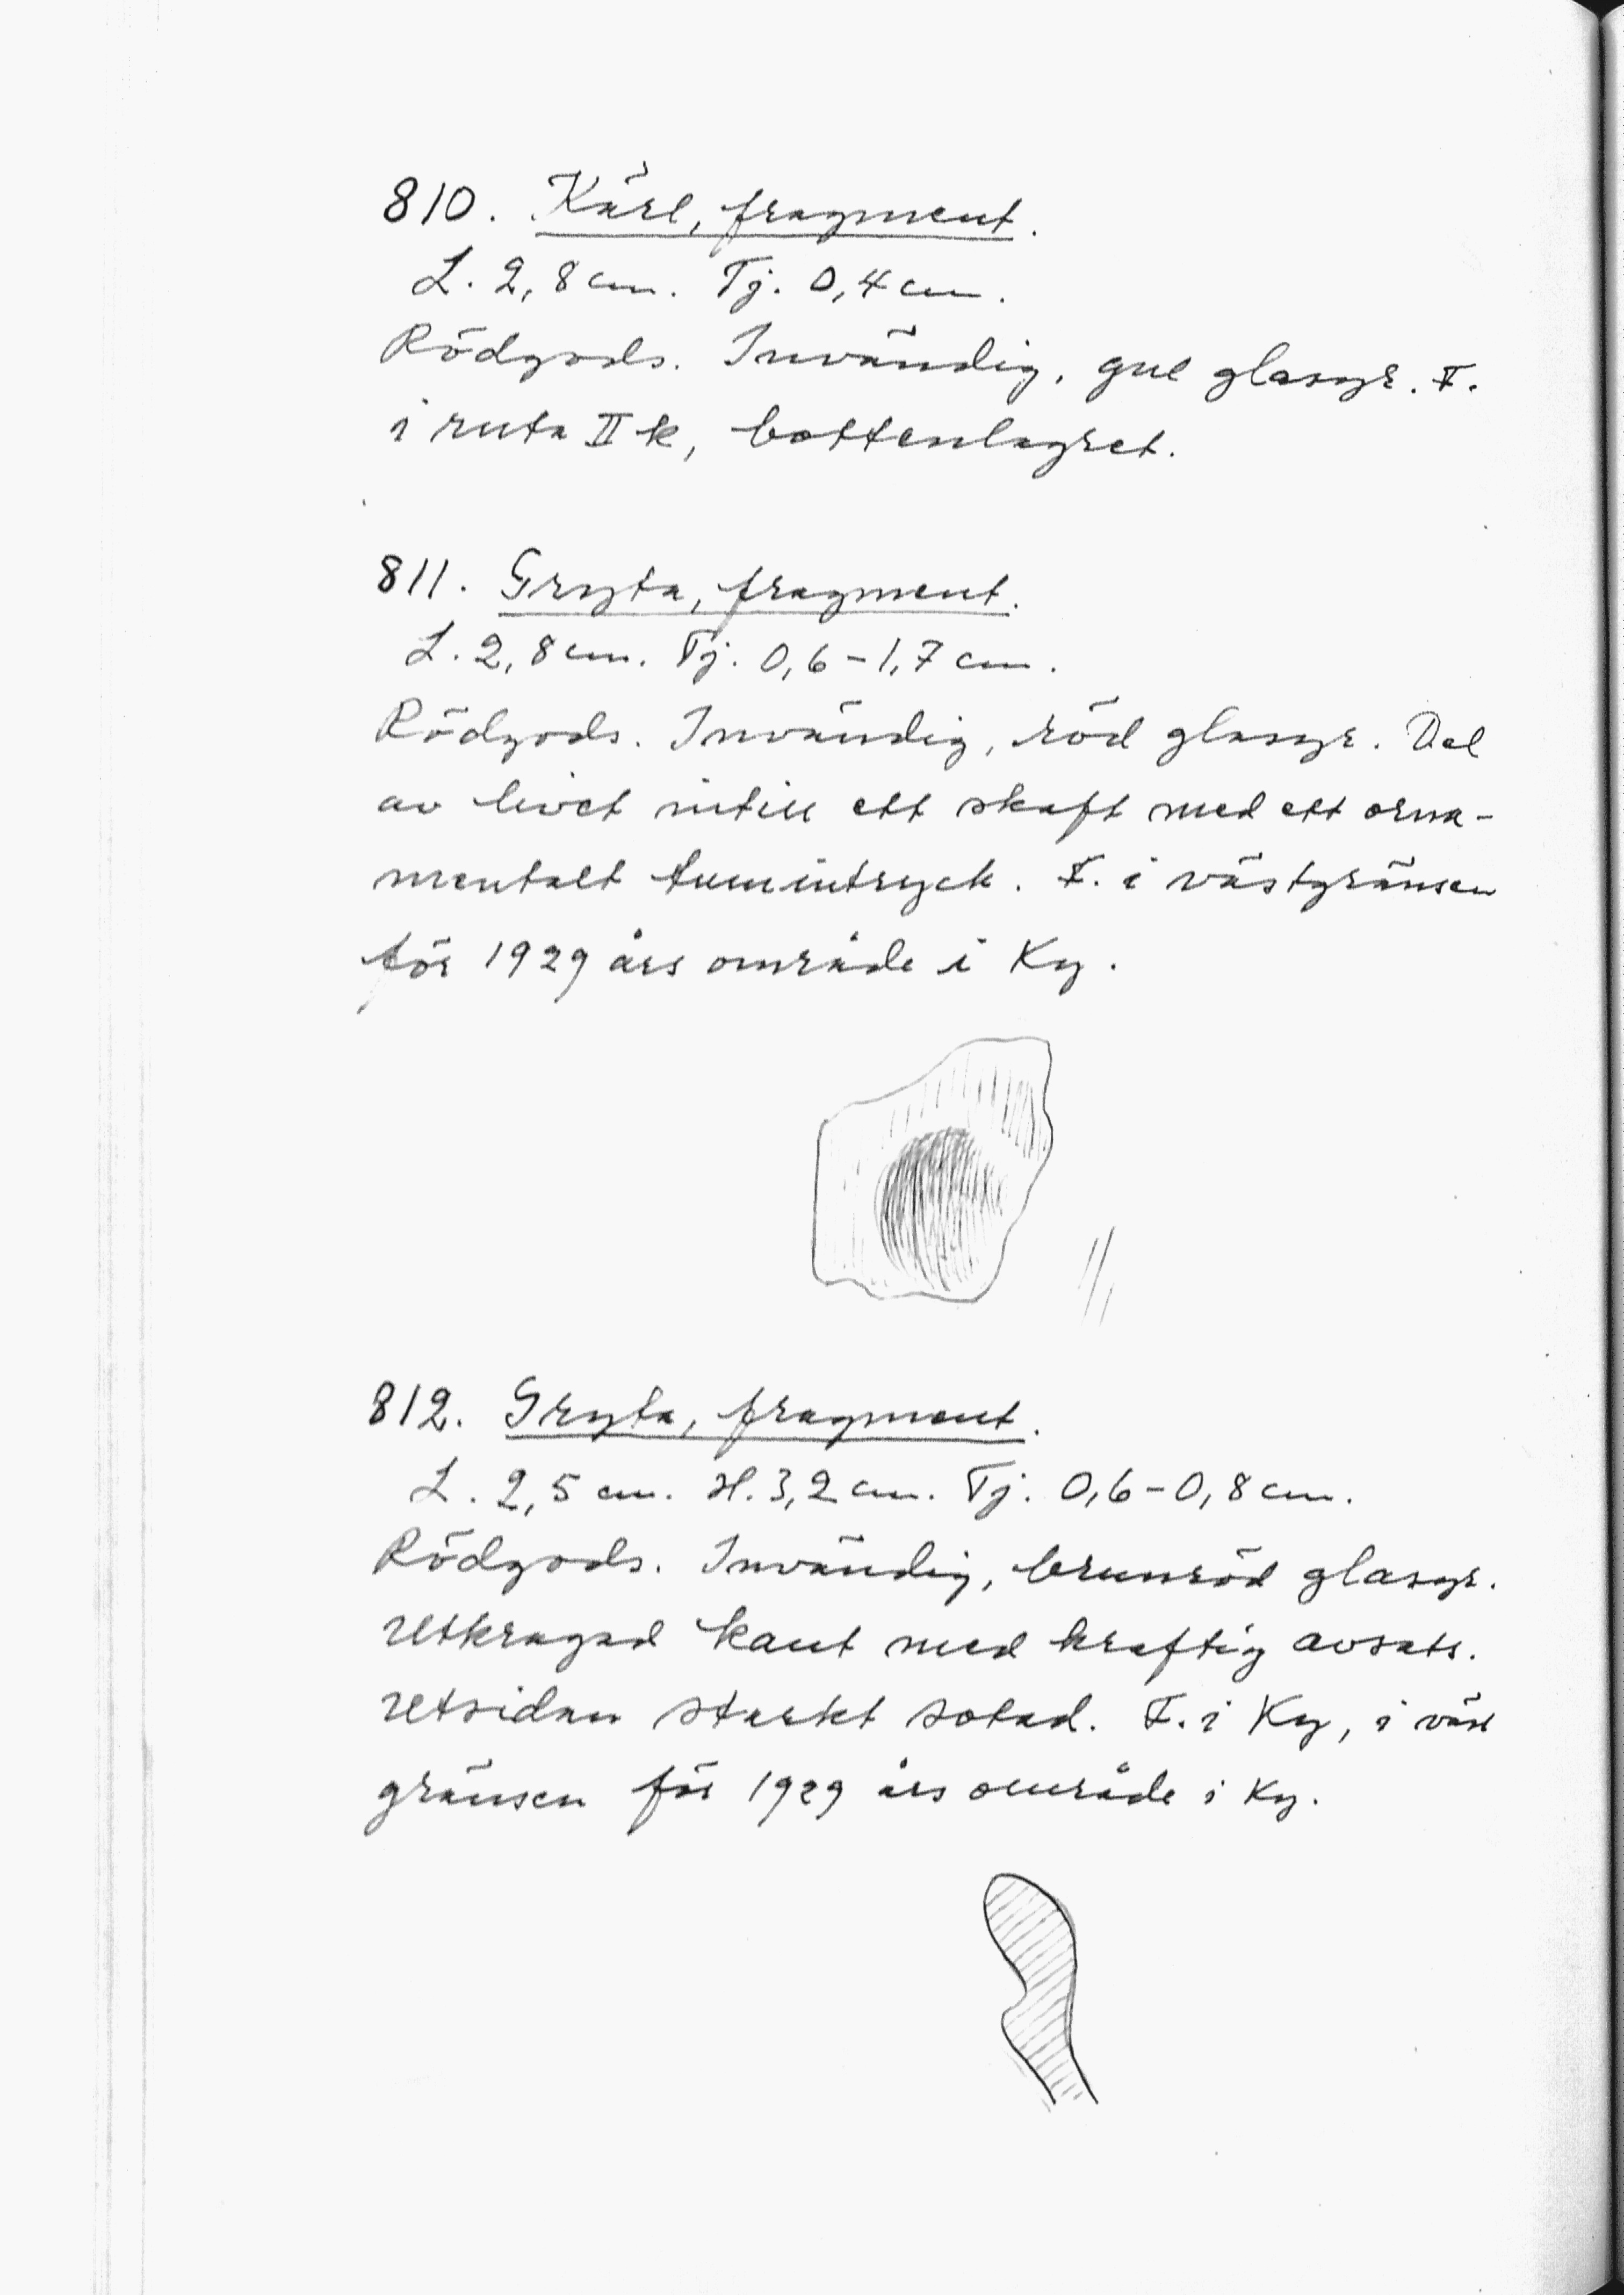 810. Kärl, fragment.
L. 2,8 cm. Tj. 0,4 cm.
Rödgods. Invändig, gul glasyr. F.
i ruta II k, bottenlagret.
811. Gryta, fragment.
L. 2,8 cm. Tj. 0,6-1,7 cm.
Rödgods. Invändig, röd glasyr. Del
av livet intill ett skaft med ett orna-
mentalt tumintryck. F. i västgränsen
för 1929 års område i Ky.
812. Gryta, fragment.
L. 2,5 cm. H. 3,2 cm. Tj. 0,6-0,8 cm.
Rödgods. Invändig, brunröd glasyr.
Utkragad kant med kraftig avsats.
Utsidan starkt sotad. F. i Ky, i väst
gränsen för 1929 års område i Ky.